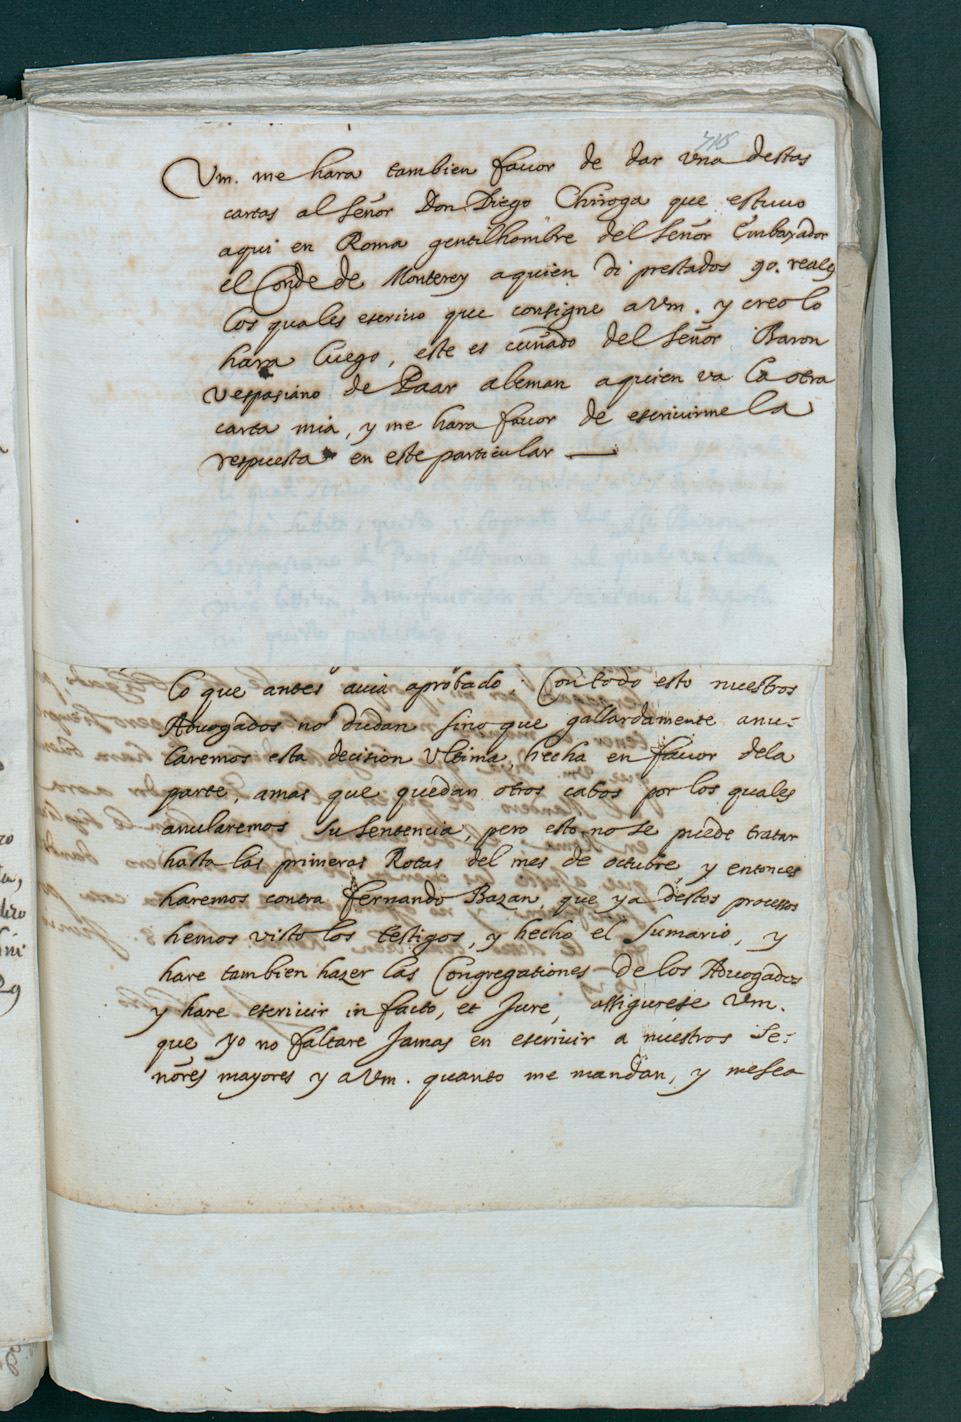 715
Vm. me hara tambien favor de dar vna destas
cartas al Señor Don Diego Chiroga que estuuo
aqui en Roma gentilhombre del Señor Embaxador
el Conde de Monterey aquien di prestados 90. reales
los quales escriuo que consigne a Vm. y creo lo
hara luego, este es cuñado del Señor Baron
Vespasiano de Paar aleman aquien va la otra
carta mia, y me hara fauor de escriuirme la
respuesta en este particular
lo que antes auia aprobado. Con todo esto nuestros
Aduogados no dudan sino que gallardamente anu-
laremos esta decision Vltima, hecha en fauor dela
parte, amas que quedan otros cabos por los quales
anularemos su sentencia, pero esto no se puede tratar
hasta las primeras Rotas del mes de octubre, y entonces
haremos contra fernando Bazan, que ya destos processos
hemos visto los testigos, y hecho el sumario, y
hare tambien hazer las Congregationes de los Aduogados
y hare escriuir in facto, et Jure, assigurese Vm.
que yo no faltare Jamas en escriuir a nuestros Se-
ñores mayores y a Vm. quanto me mandan, y me sea